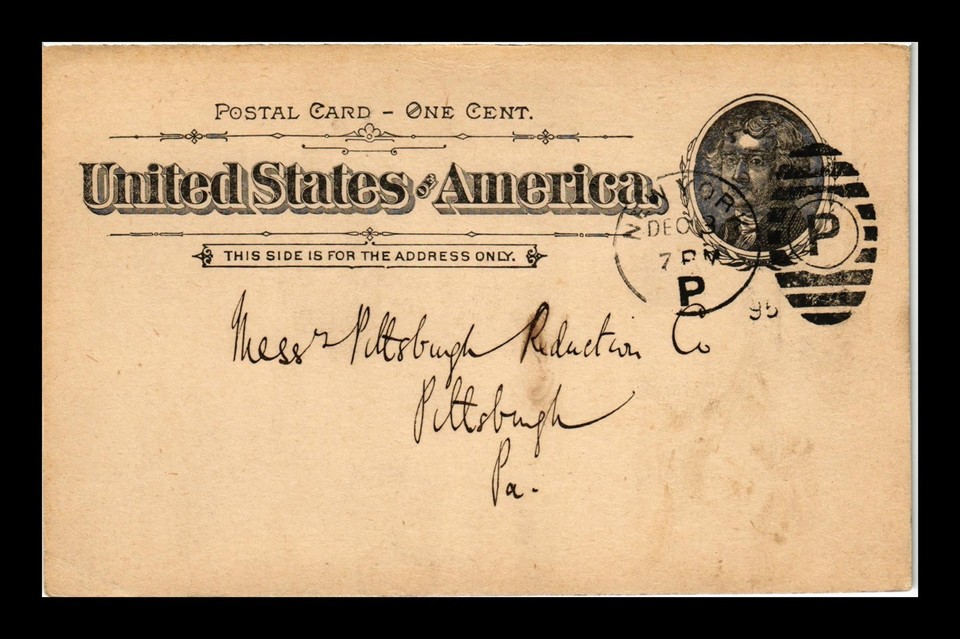 POSTAL CARD – ONE CENT.
United States OF America.
THIS SIDE IS FOR THE ADDRESS ONLY.
N YOR
DEC 9
7 PM
P
95
P
Messrs Pittsburgh Reduction Co
Pittsburgh
Pa.